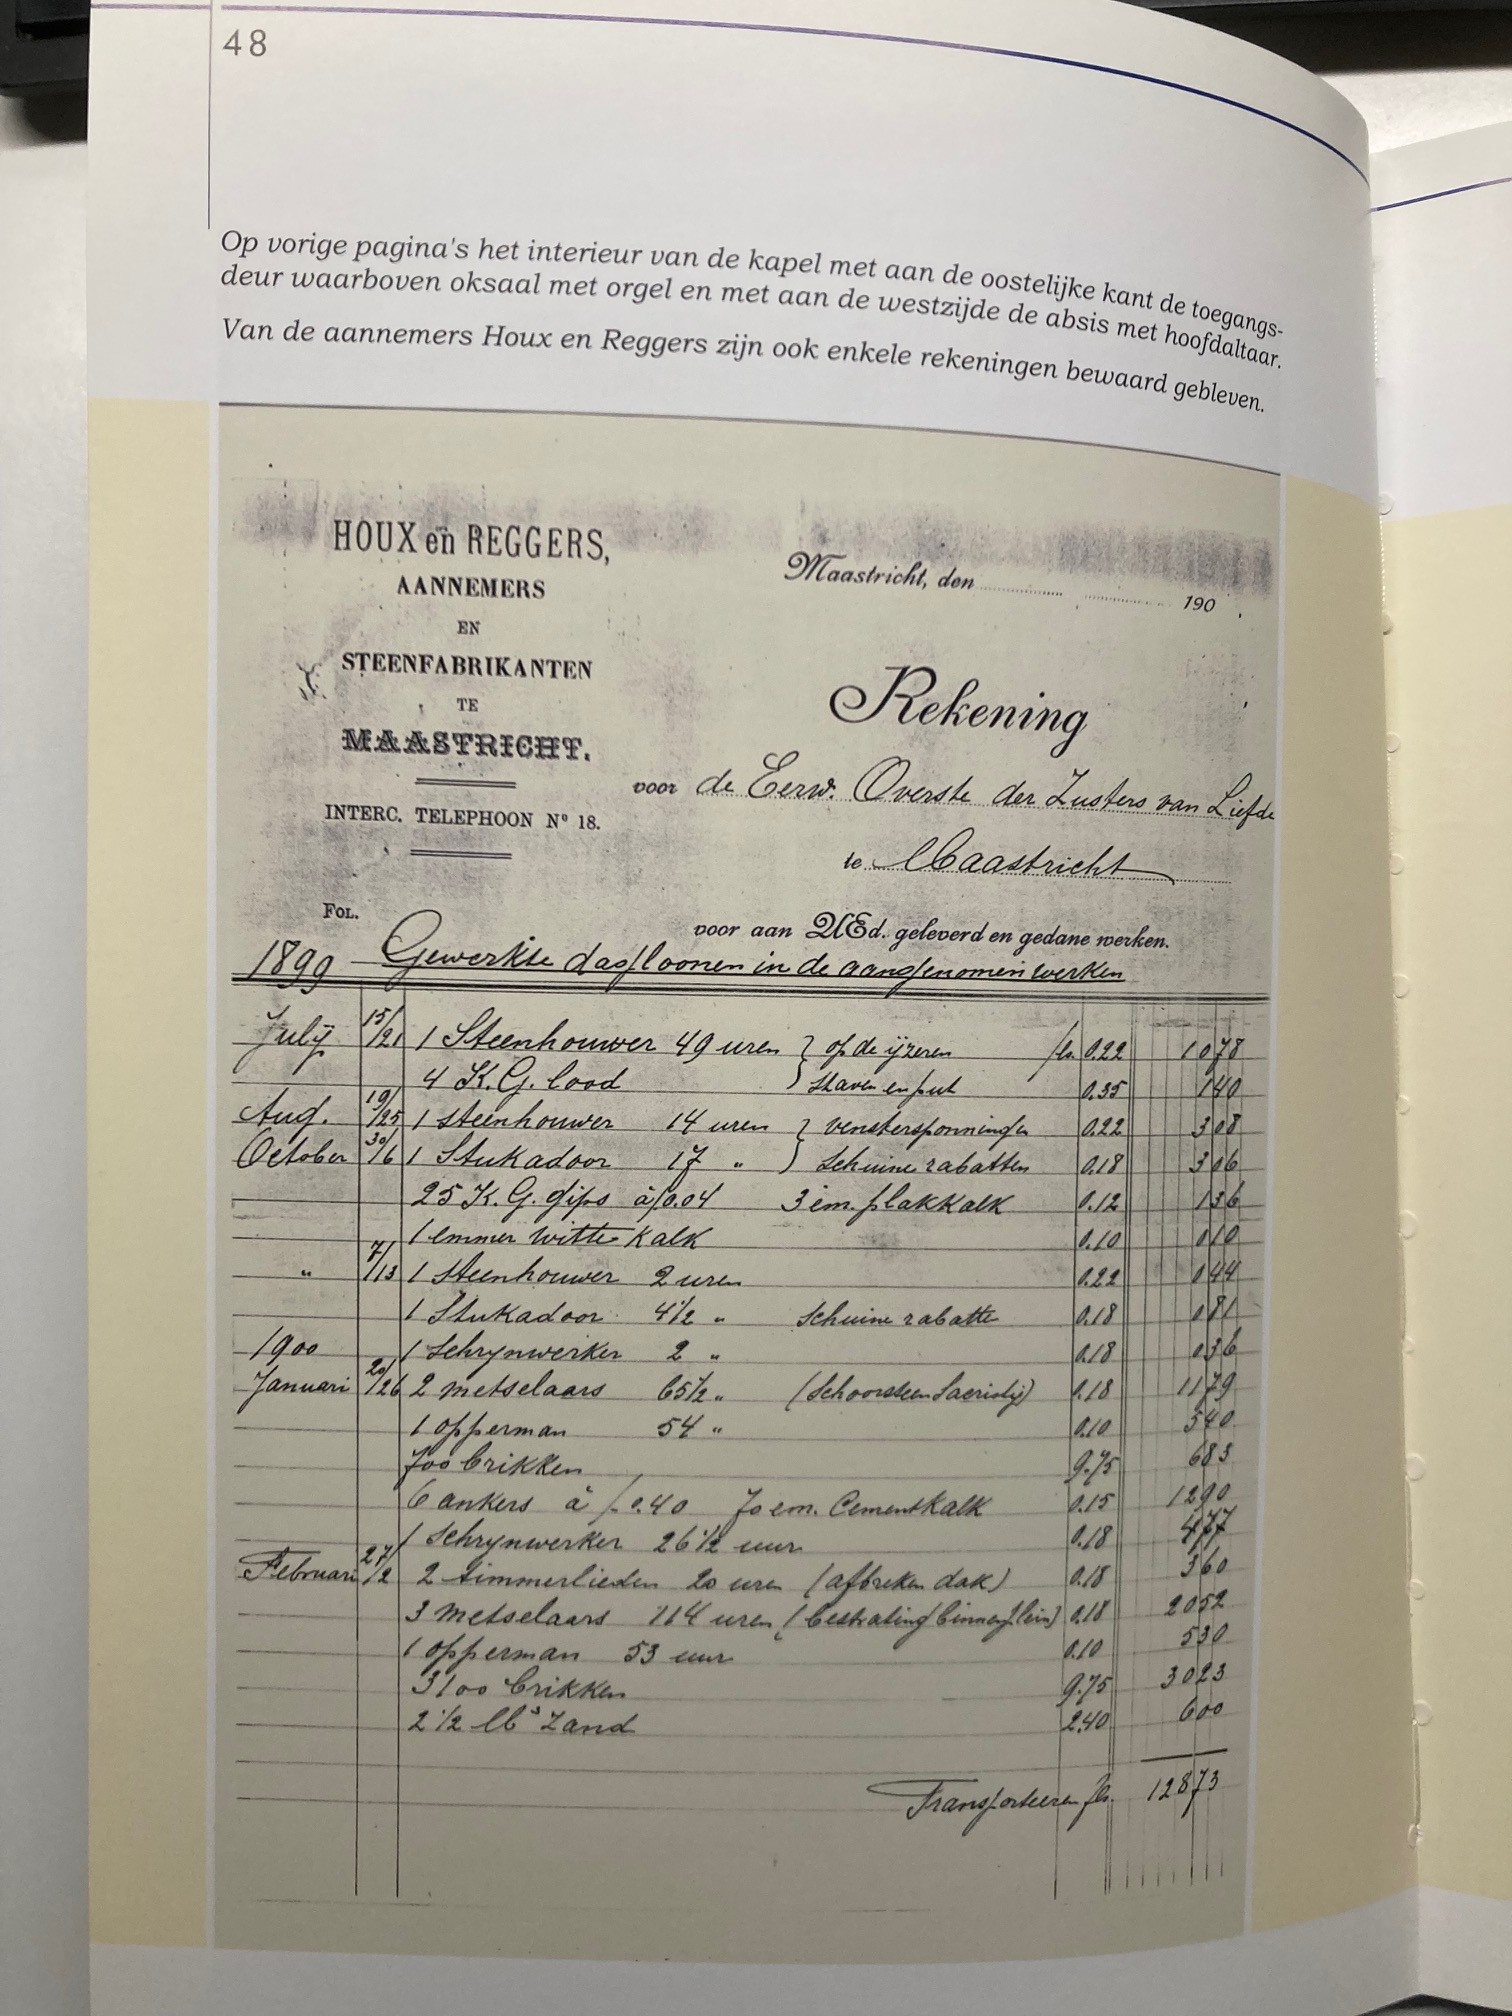 48
Op vorige pagina's het interieur van de kapel met aan de oostelijke kant de toegangs-
deur waarboven oksaal met orgel en met aan de westzijde de absis met hoofdaltaar.
Van de aannemers Houx en Reggers zijn ook enkele rekeningen bewaard gebleven.
HOUX en REGGERS,
AANNEMERS
EN
STEENFABRIKANTEN
TE
MAASTRICHT.
INTERC. TELEPHOON Nº 18.
Maastricht, den 190
Rekening
voor de Eerw. Overste der Zusters van Liefde
te Maastricht
FOL.
voor aan UEd. geleverd en gedane werken.
1899 Gewerkte dagloonen in de aangenomen werken
July 15/21 1 Steenhouwer 49 uren } op de ijzeren fls. 0.22 1078
4 K.G. lood } staven en put 0.35 140
Aug. 19/25 1 steenhouwer 14 uren } venstersponningen 0.22 308
October 30/6 1 Stukadoor 17 " } schuine rabatten 0.18 306
25 K.G. gips à f 0.04 3 em. plakkalk 0.12 136
1 emmer witte kalk 0.10 010
" 7/13 1 steenhouwer 2 uren 0.22 044
1 Stukadoor 4 1/2 " schuine rabatte 0.18 081
1900 1 schrynwerker 2 " 0.18 036
Januari 20/26 2 metselaars 65 1/2 " (schoorsteen Sacristij) 0.18 1179
1 opperman 54 " 0.10 540
700 brikken 9.75 683
6 ankers à f 0.40 70 em. Cementkalk 0.15 1290
1 schrynwerker 26 1/2 uur 0.18 477
Februari 27/2 2 timmerlieden 20 uren (afbreken dak) 0.18 360
3 metselaars 114 uren (bestrating binnenplein) 0.18 2052
1 opperman 53 uur 0.10 530
3100 brikken 9.75 3023
2 1/2 Zand 2.40 600
Transporteeren fls. 12873